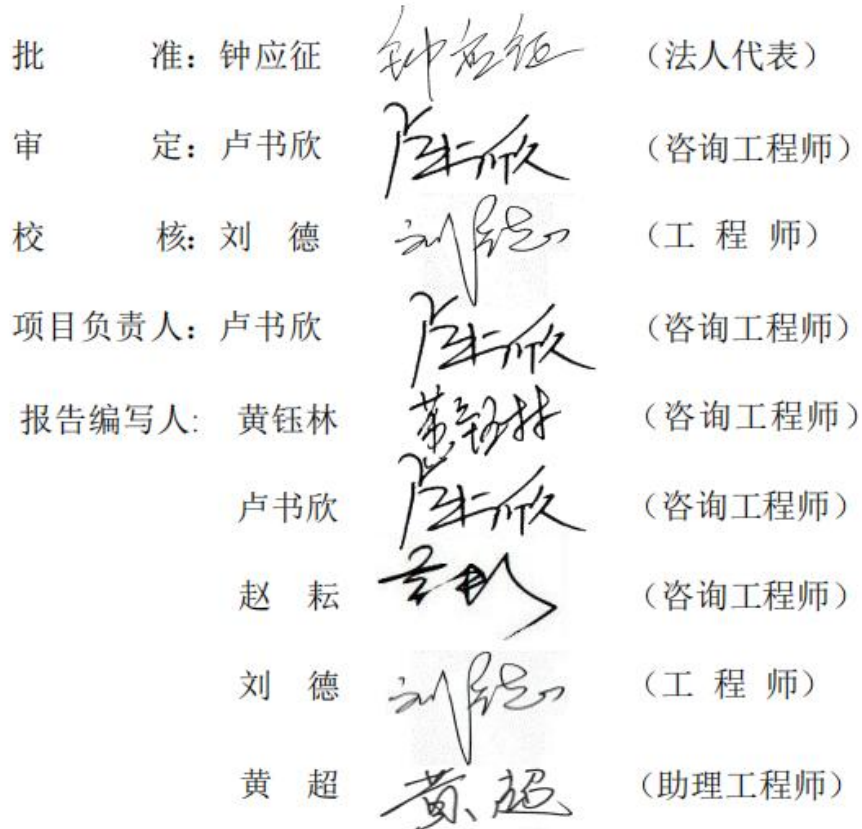 批 准：钟应征 钟应征 （法人代表）
审 定：卢书欣 卢书欣 （咨询工程师）
校 核：刘 德 刘德 （工 程 师）
项目负责人：卢书欣 卢书欣 （咨询工程师）
报告编写人: 黄钰林 黄钰林 （咨询工程师）
卢书欣 卢书欣 （咨询工程师）
赵 耘 （咨询工程师）
刘 德 刘德 （工 程 师）
黄 超 黄超 （助理工程师）